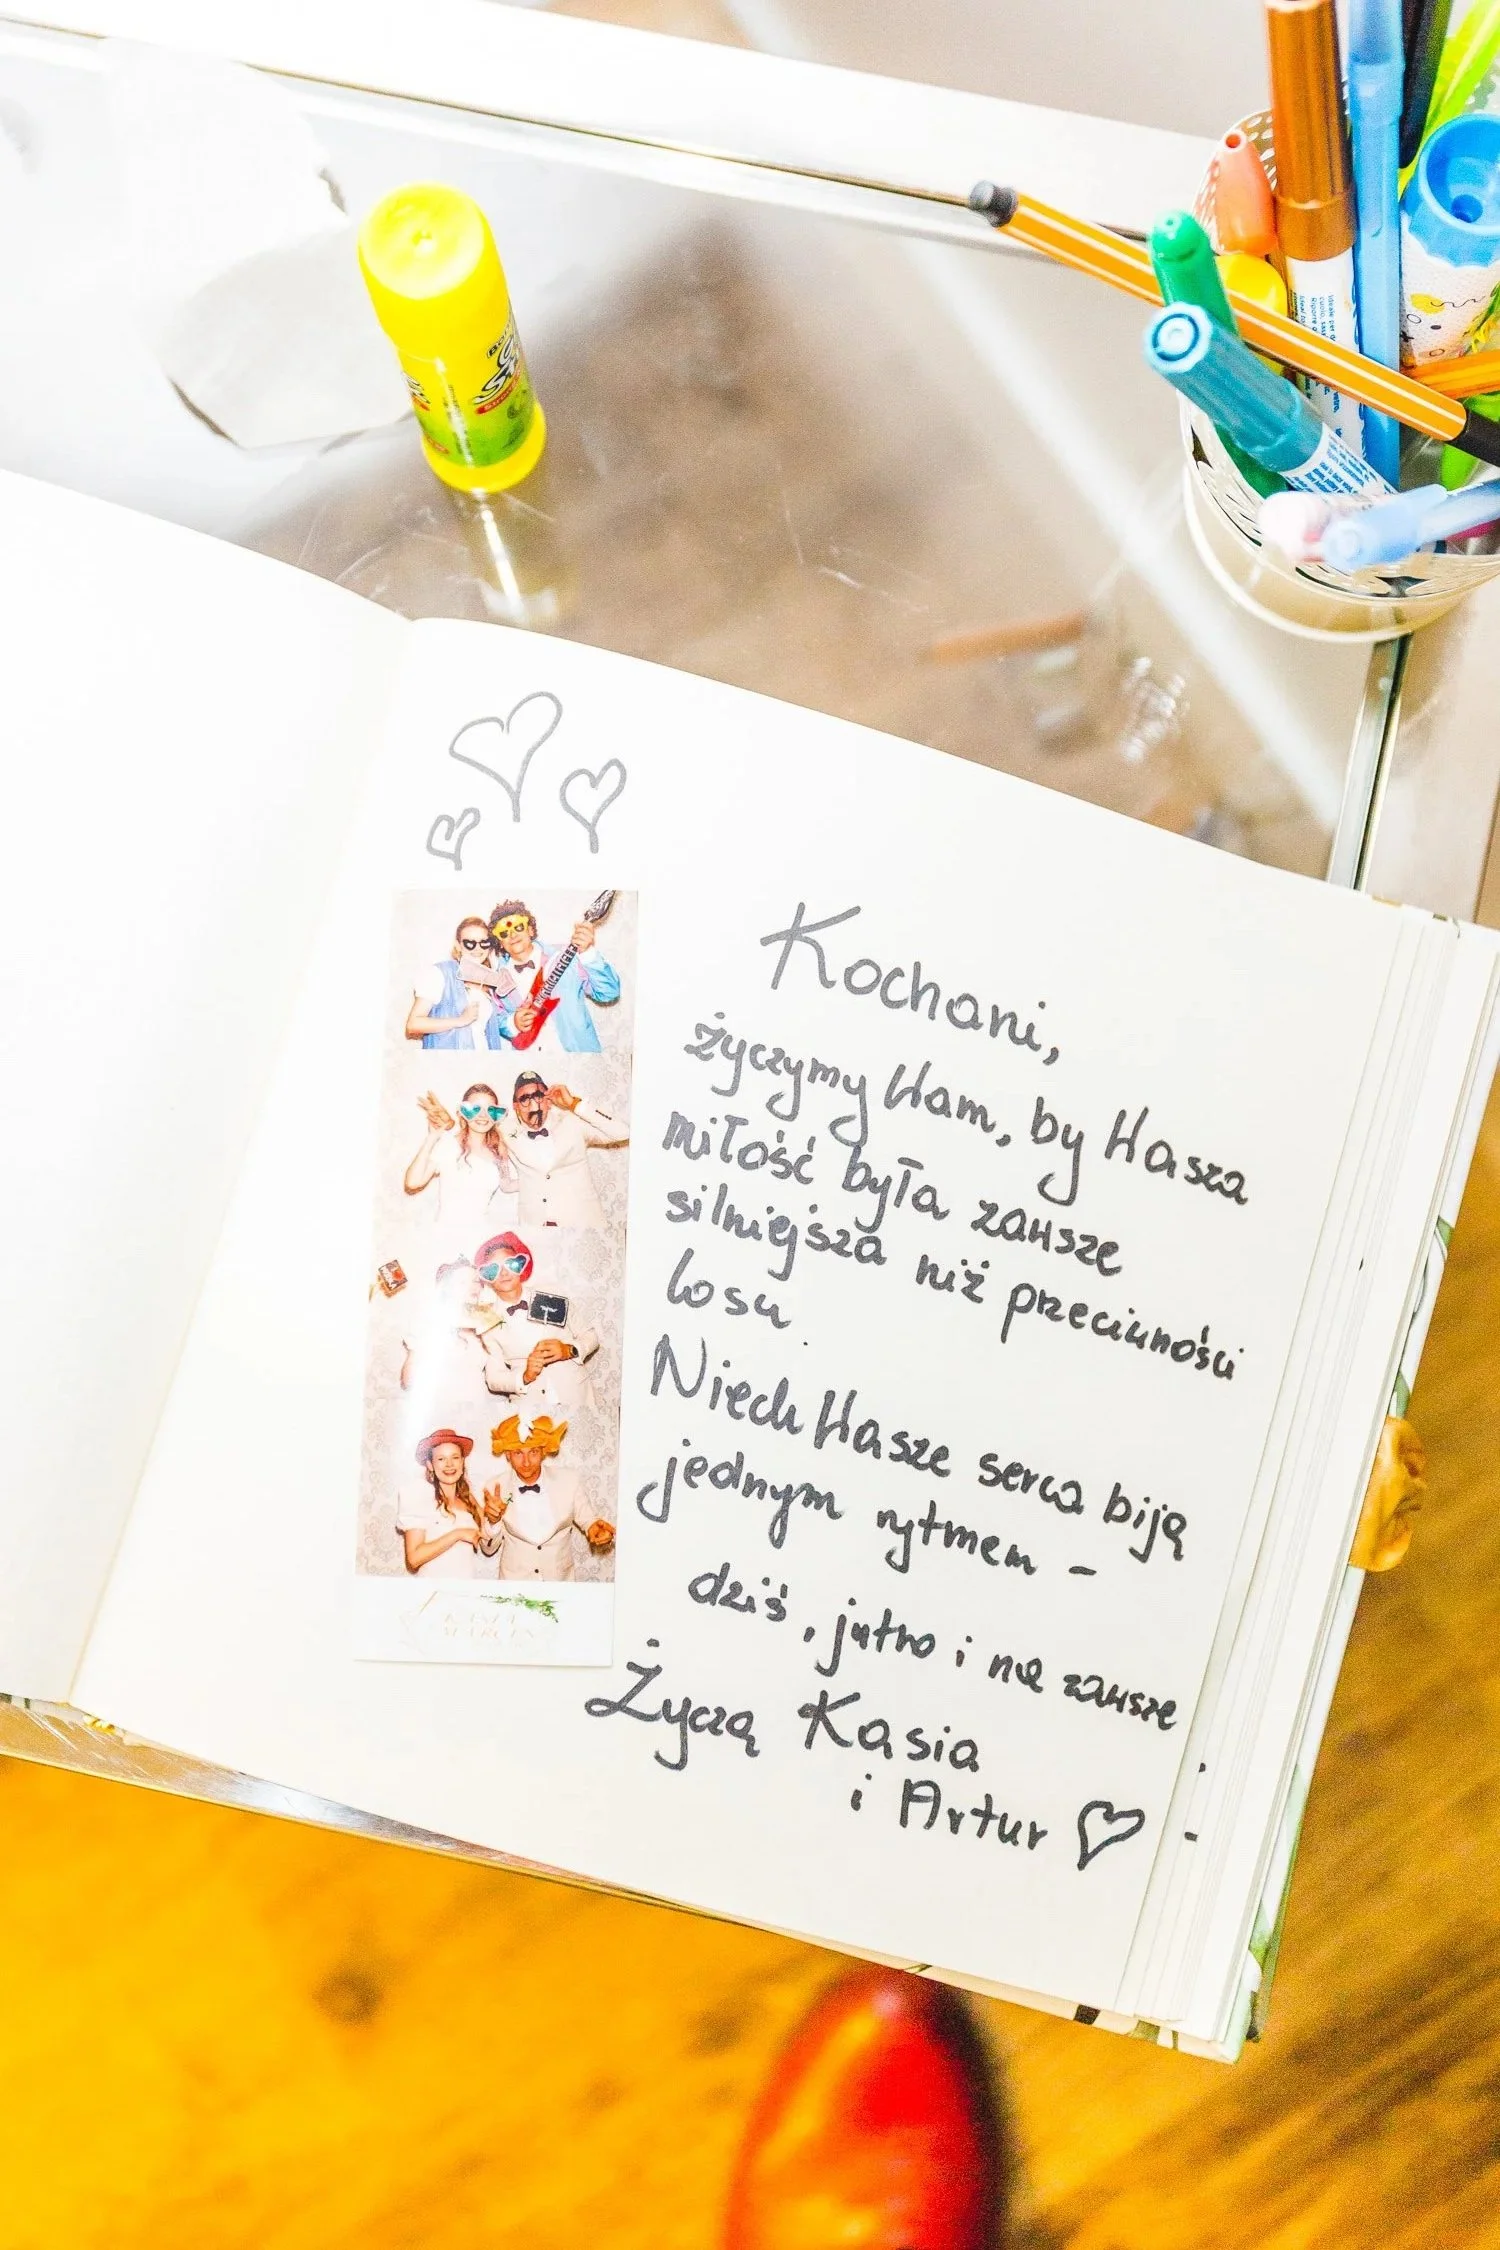 Kochani,
życzymy Wam, by Wasza
miłość była zawsze
silniejsza niż przeciwności
losu.
Niech Wasze serca biją
jednym rytmem -
dziś, jutro i na zawsze
Życzą Kasia
i Artur